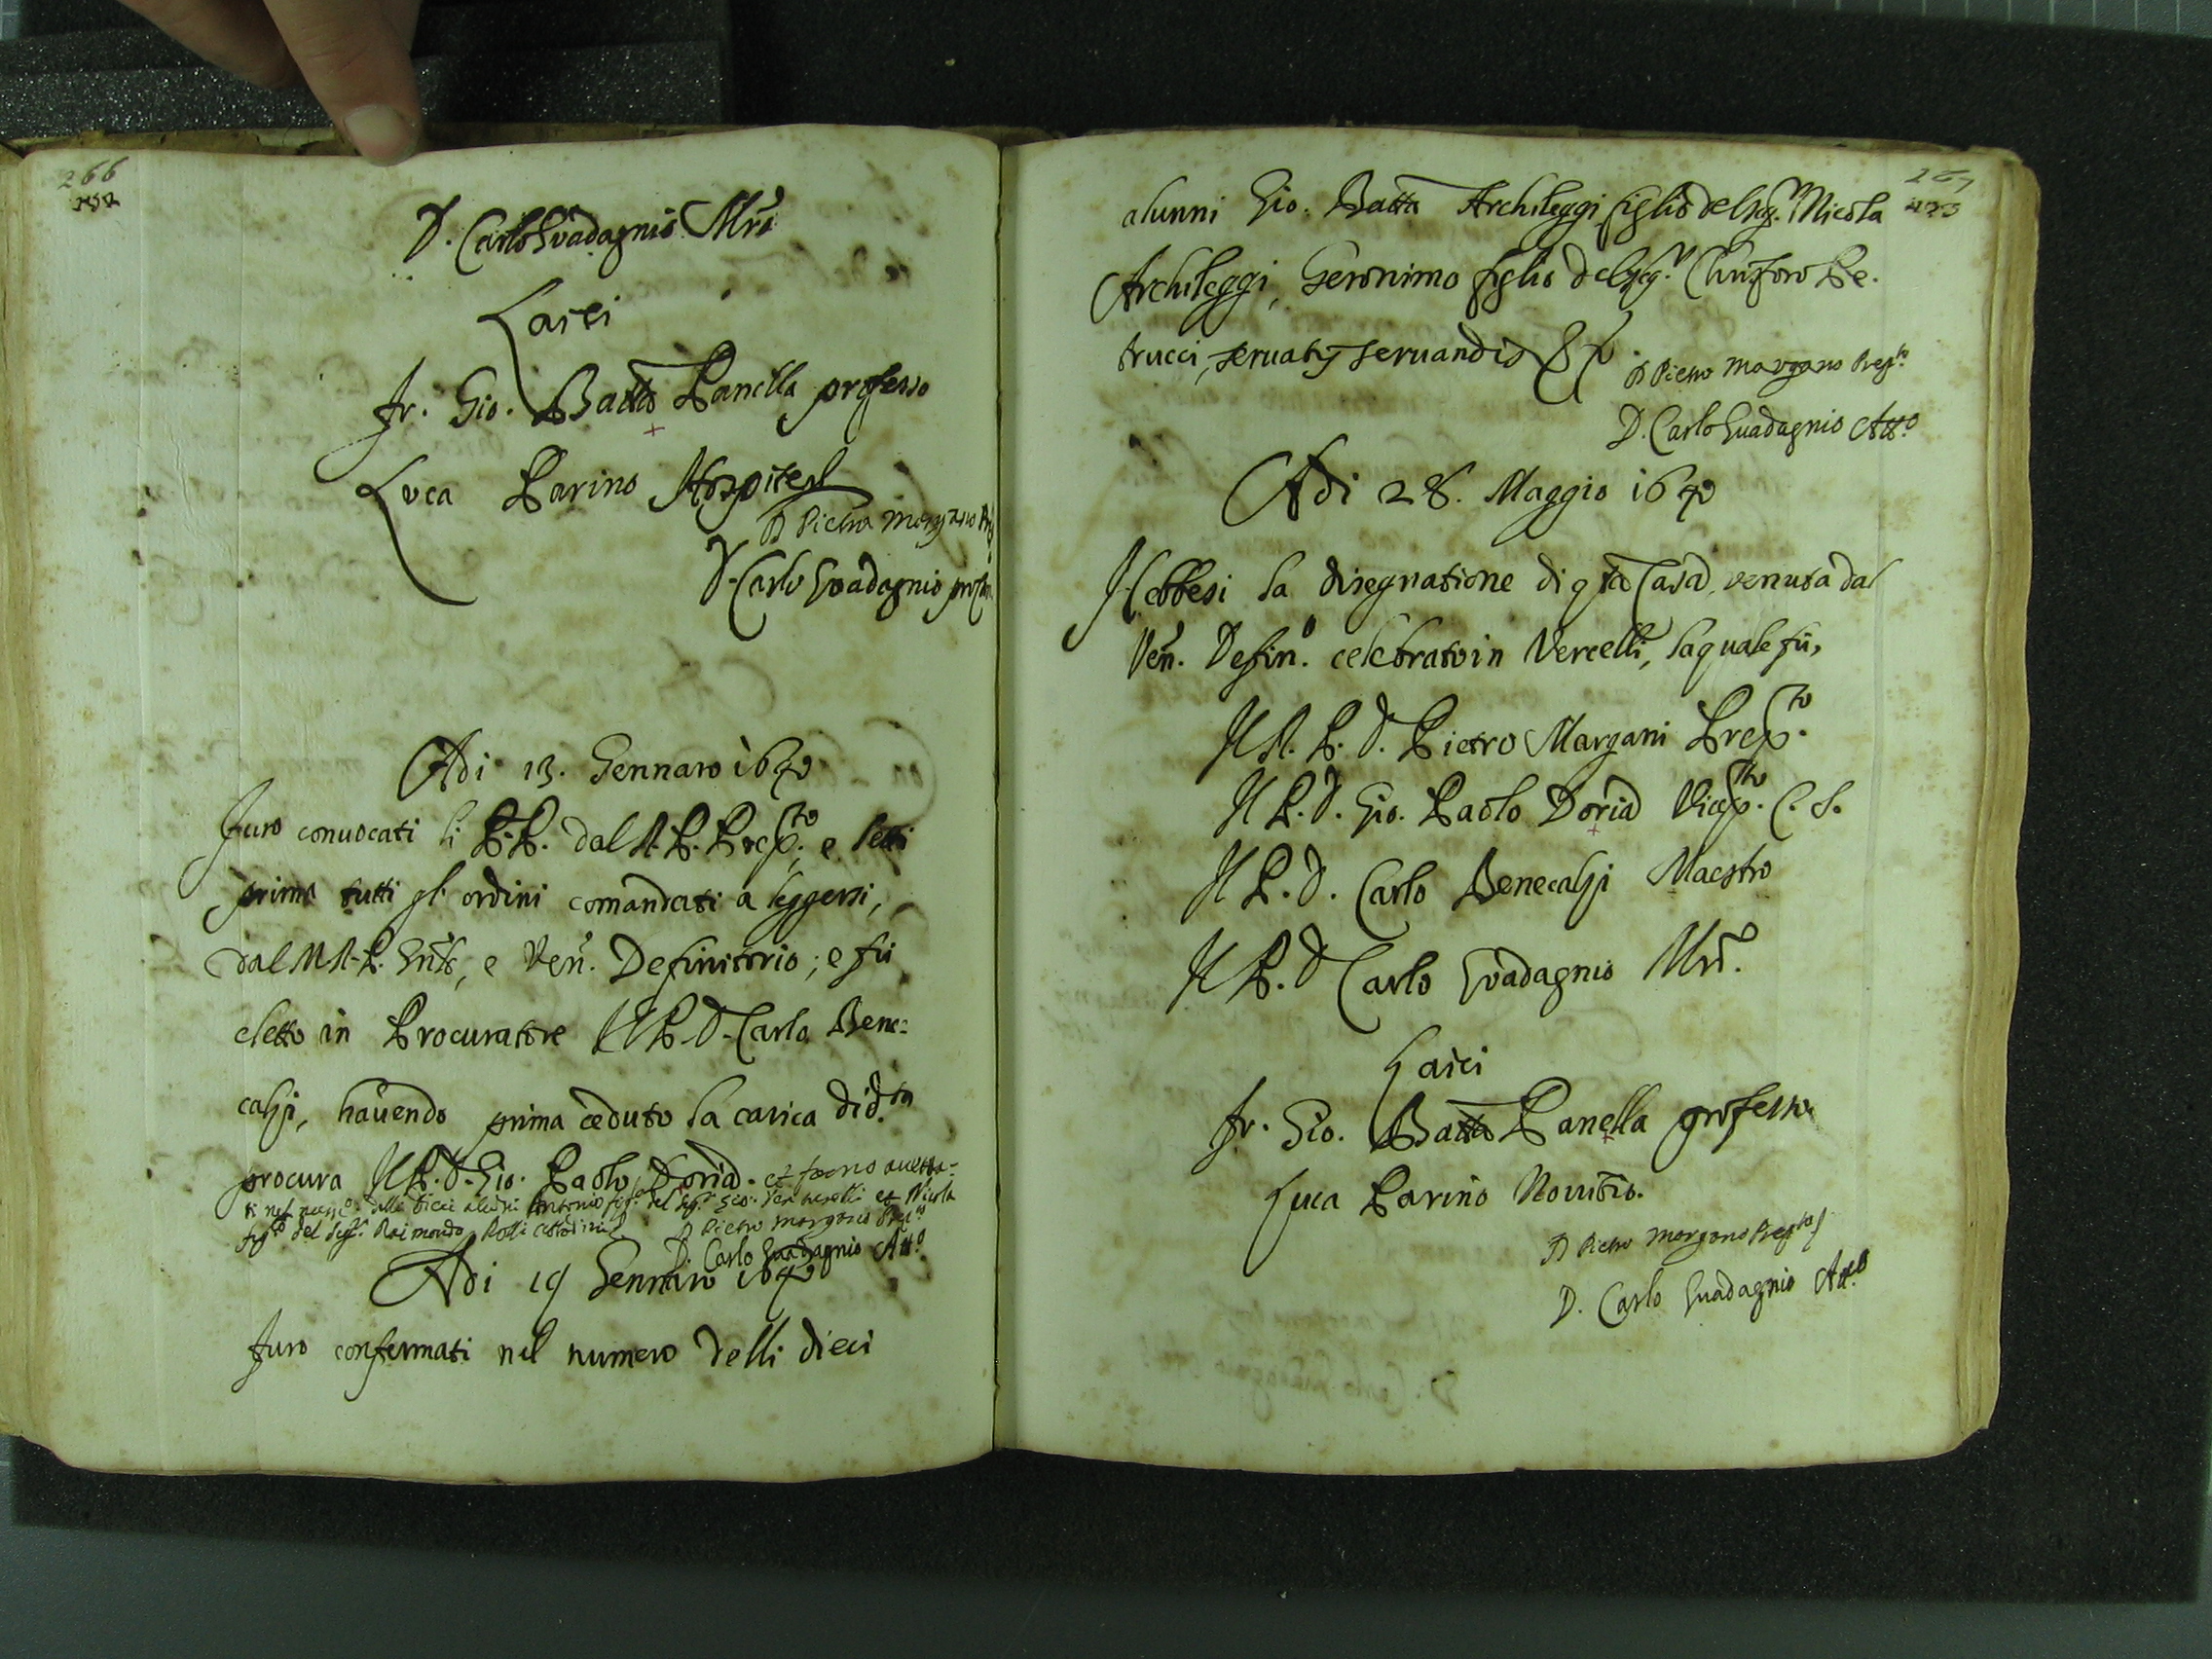 266
D. Carlo Guadagnio Mro
Laici
fr. Gio. Batta Panella professo
Luca Parino Hospite
D Pietro Margano
D. Carlo Guadagnio
Adi 13. Gennaro 1640
Furo conuocati li P.P. dal R. P. Prepto. e letti
prima tutti gl' ordini comandati a leggersi,
dal M R. P. Gnle, e Ven. Definitorio; e fù
eletto in Procuratore Il P. D. Carlo Bene-
calsi, hauendo prima ceduto la carica di d.ta
procura Il P. D. Gio. Paolo Doria. et forno accetta-
ti nel num.o delli dieci alunni Antonio fig.o del Sig.r Gio. et Nicola
fig.o del Sig.r Raimondo Rolli cittadini. D Pietro Margano Prepto
D. Carlo Guadagnio Att.o
Adi 19 Gennaro 1640
Furo confermati nel numero delli dieci
267
alunni Gio. Batta Archileggi figlio del Sig.r Nicola
Archileggi, Geronimo figlio del Sig.r Chrisforo Pe.
trucci, seruatis seruandis &
D Pietro Margano Prepto
D. Carlo Guadagnio Att.o
Adi 28. Maggio 1640
Hebbesi la disegnatione di q.sta Casa, venuta dal
Ven. Defin.o celebrato in Vercelli, la quale fù,
Il R. P. D. Pietro Margani Prep.to
Il P. D. Gio. Paolo Doria Vicep.to C. S.
Il P. D. Carlo Benecalsi Maestro
Il P. D Carlo Guadagnio Mro.
Laici
fr. Gio. Batta Panella professo
Luca Parino Nouitio.
D Pietro Margano Prepto
D. Carlo Guadagnio Att.o